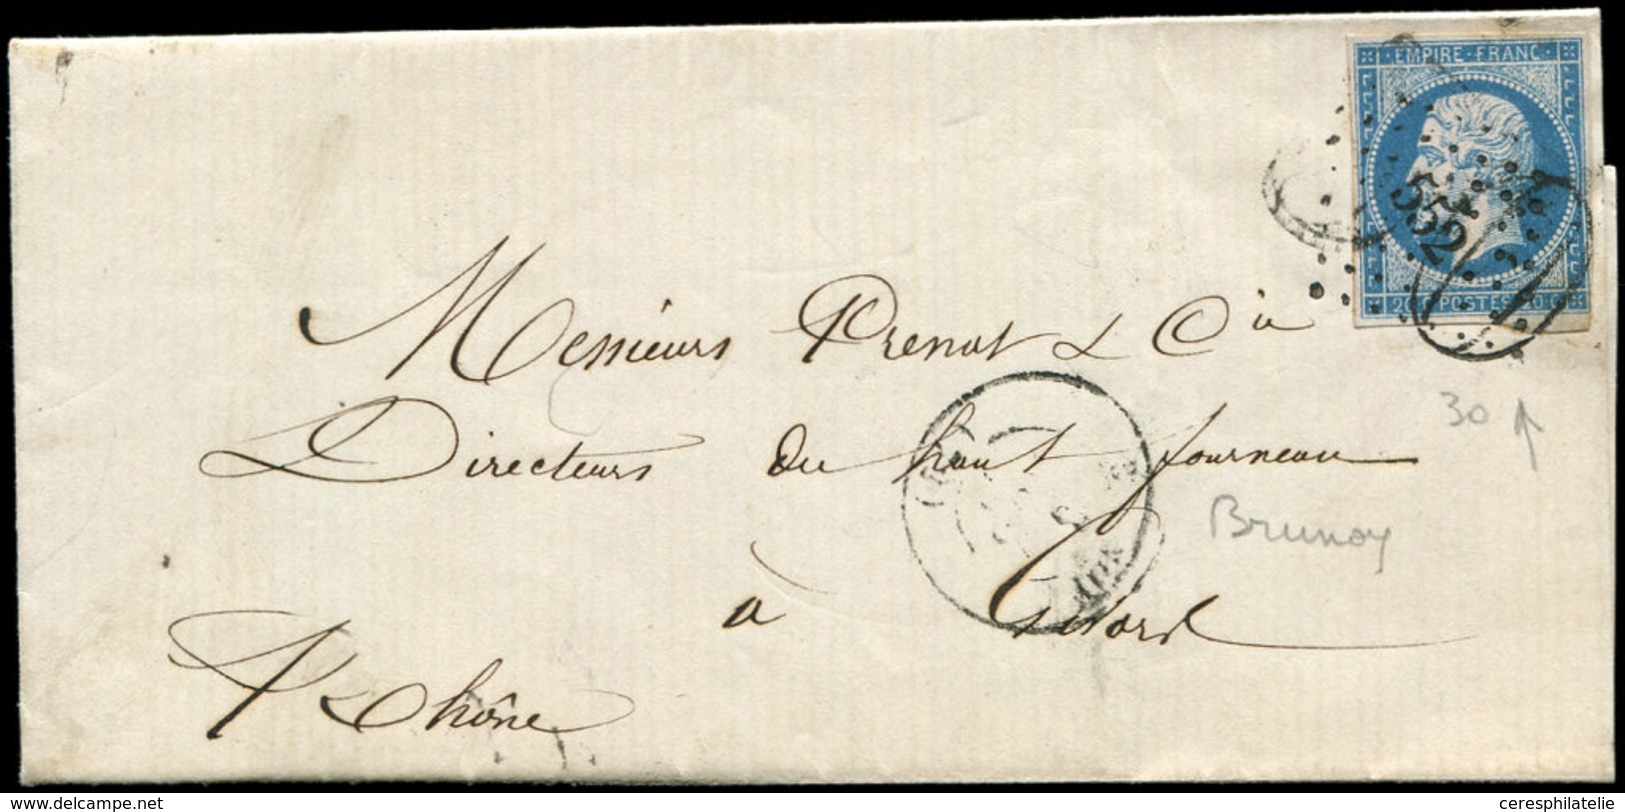 EMPIRE-FRANC
552
20 C POSTES 20 C
Messieurs Prenat & Cie
30
Directeurs du haut fourneau
Brunoy
à Givors
Rhône
www.delcampe.net
ceresphilatelie